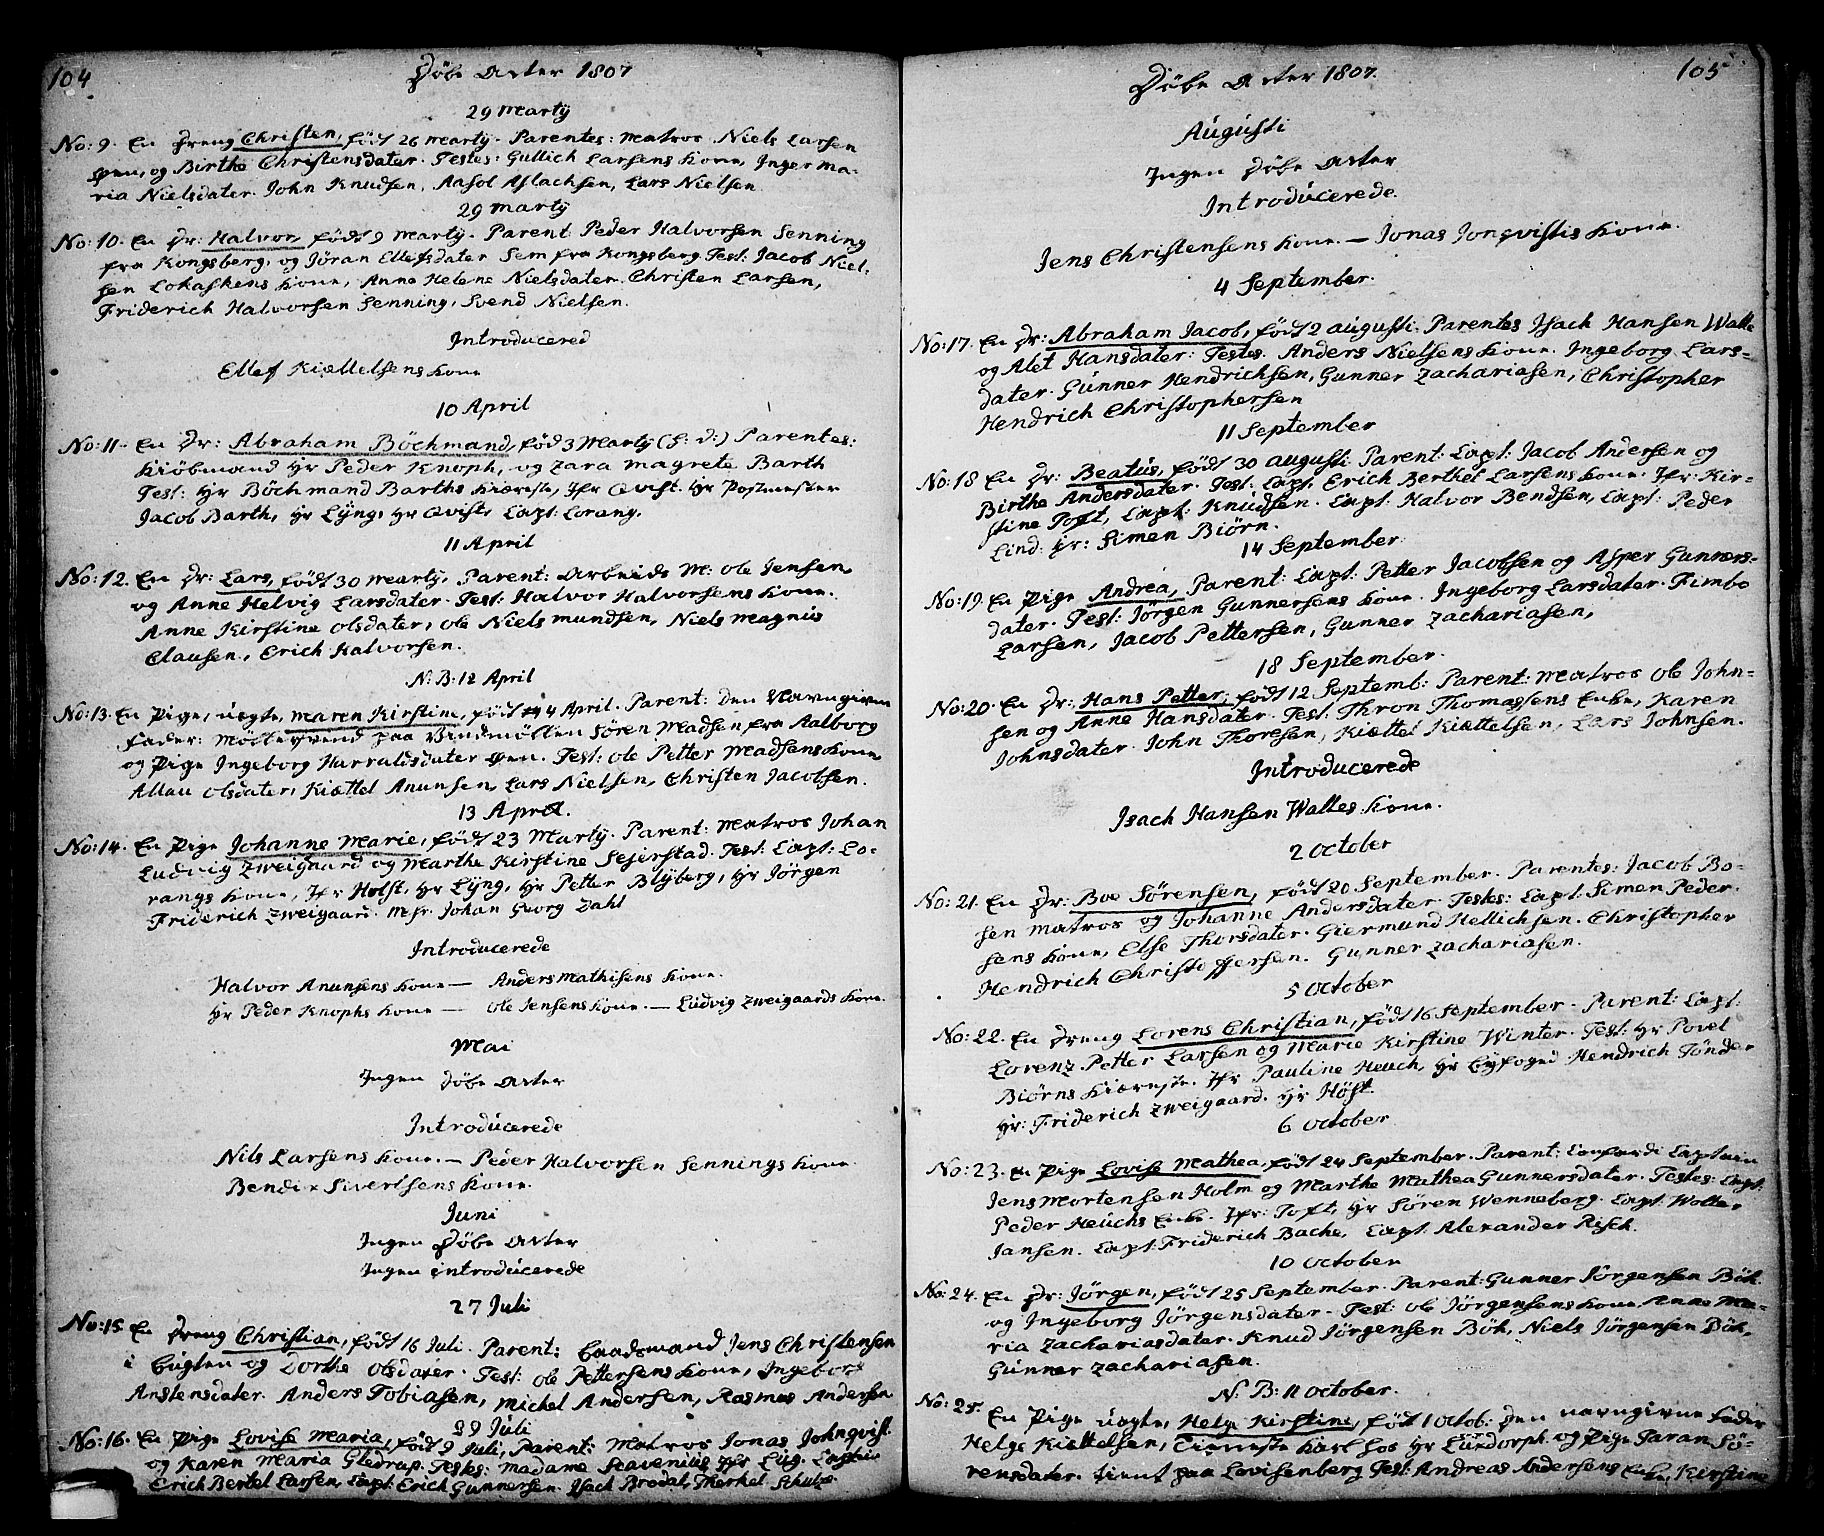 104
Döbe Acter 1807
29 Martÿ
No: 9. En Dreng Christen, föd 26 Martÿ. Parentes: Matros Niels Larsen
Øen, og Birthe Christensdater. Testes: Gullich Larsens Kone, Inger Ma-
ria Nielsdater. John Knudsen, Aasol Aslachsen, Lars Nielsen
29 Martÿ
No: 10. En Dr: Halvor, född 9 Martÿ. Parent: Peder Halvorsen Senning
fra Kongsberg, og Jöran Ellefsdater Sem fra Kongsberg. Test: Jacob Niel-
sen Lokaskens Kone, Anne Helene Nielsdater. Christen Larsen,
Friderich Halvorsen Senning, Svend Nielsen.
Introducered
Ellef Kiættelsens Kone
10 April
No: 11. En Dr: Abraham Böchmand, föd 3 Martÿ (h: d:) Parentes:
Kiöbmand Hr Peder Knoph, og Zara Magrete Barth
Test: Hr Böchmand Barths Kiæreste, Jfr Qvist. Hr Postmester
Jacob Barth, Hr Lÿng, Hr Qvist, Capt: Lorang.
11 April
No: 12. En Dr: Lars, född 30 Martÿ. Parent: Arbeids M: Ole Jensen
og Anne Helvig Larsdater. Test: Halvor Halvorsens Kone.
Anne Kirstine Olsdater, Ole Nielsmundsen, Niels Magnus
Clausen, Erich Halvorsen.
N. B: 12 April
No: 13. En Pige, uegte, Maren Kirstine, född 4 April. Parent: den Navngiven
Fader: Möllersvend paa Vindmöllen Sören Madsen fra Aalborg
og Pige Ingeborg Harraldsdater Øen. Test: Ole Petter Madsens Kone
Allau Olsdater, Kiættel Anunsen, Lars Nielsen, Christen Jacobsen.
13 April.
No: 14. En Pige Johanne Marie, född 23 Martÿ. Parent: Matros Johan
Ludvig Zweigaard og Marthe Kirstine Sejerstad. Test: Capt: Lo-
rangs Kone, Jfr Holst, Hr Lÿng, Hr Petter Blÿberg, Hr Jörgen
Friderich Zweigaard. Msr. Johan Georg Dahl
Introducerede
Halvor Anunsens Kone — Anders Mathisens Kone.
Hr Peder Knophs Kone — Ole Jensens Kone. — Ludvig Zweigaards Kone.
Mai
Ingen Döbe Acter
Introducerede
Nils Larsens Kone. — Peder Halvorsen Sennings Kone
Bendix Sivertsens Kone.
Juni
Ingen Döbe Acter
Ingen introducerede
27 Juli
No: 15 En Dreng Christian, född 16 Juli. Parent: Baadsmand Jens Christensen
i Bugten og Dorthe Olsdater. Test: Ole Pettersens Kone, Ingeborg
Anstensdater. Anders Tobiasen, Michel Andersen, Rasmus Andersen
29 Juli
No: 16. En Pige Lovise Maria, född 9 Juli, Parent: Matros Jonas Johnqvist
og Karen Maria Gledrup. Testes: Madame Stavenius Jfr Eug:
Erich Bertel Larsen, Capt: Erich Gunnersen. Isach Brodal, Therkel Schutze
105
Döbe Acter 1807.
Augusti
Ingen Döbe Acter
Introducerede.
Jens Christensens Kone. — Jonas Jonqvistis Kone.
4 September.
No: 17. En Dr: Abraham Jacob, född 2 Augusti. Parentes Isach Hansen Walle
og Alet Hansdater: Testes. Anders Nielsens Kone. Ingeborg Lars-
dater. Gunner Hendrichsen, Gunner Zachariasen, Christopher
Hendrich Christophersen
11 September
No: 18 En Dr: Beatus, född 30 Augusti. Parent: Capt: Jacob Andersen og
Birthe Andersdater. Test: Capt. Erich Berthel Larsens Kone. Jfr Kir-
stine Toft, Capt: Knudsen. Capt: Halvor Bendsen, Capt: Peder
Lind. Hr: Simen Biörn.
14 September
No: 19. En Pige Andrea, Parent: Capt: Petter Jacobsen og Asper Gunners-
dater. Test: Jörgen Gunnersens Kone. Ingeborg Larsdater. Timbo
Larsen, Jacob Pettersen, Gunner Zachariasen,
18 September.
No: 20. En Dr: Hans Petter, född 12 Septemb: Parent: Matros Ole John-
sen og Anne Hansdater. Test: Thron Thomassens Enke, Karen
Johnsdater. John Thoresen, Kiættel Kiættelsen, Lars Johnsen.
Introducerede
Isach Hansen Walles Kone.
2 October
No: 21. En Dr: Boe Sörensen, född 20 September. Parentes: Jacob Bo-
sen Matros og Johanne Andersdater. Testes: Capt: Simen Peder-
sens Kone, Else Thorsdater. Giermund Hellichsen. Christopher
Hendrich Christoffersen. Gunner Zachariasen.
5 October
No: 22. En Dreng Lorens Christian, född 16 September. Parent: Capt:
Lorenz Petter Larsen og Marie Kirstine Winter. Test: Hr Povel
Biörns Kiæreste. Jfr Pauline Heuch, Hr Byfoged Hendrich Tönder
Hr: Friderich Zweigaard. Hr Höst.
6 October
No: 23. En Pige Lovise Mathea, född 24 September. Parent: Coofardi Captain
Jens Mortensen Holm og Marthe Mathea Gunnersdater. Testes: Capt:
Peder Heuchs Enke. Jfr: Toft, Hr Sören Wenneberg. Capt: Wolter
Jansen. Capt: Friderich Bache, Capt: Alexander Risch.
10 October
No: 24. En Dr: Jörgen, född 25 September. Parent: Gunner Jörgensen Böh
og Ingeborg Jörgensdater. Test: Ole Jörgensens Kone Anne Ma-
ria Zachariasdater. Knud Jörgensen Böh, Niels Jörgensen Böh,
Gunner Zachariasen.
N. B: 11 October.
No: 25. En Pige uegte, Helge Kirstine, född 1 Octob: den navngivne Fader
Helge Kiættelsen, Tieneste Karl hos Hr Luxdorph. og Pige Taran Sö-
rensdater. tient paa Lovisenberg Test: Andreas Andersens Enke, Kirstine